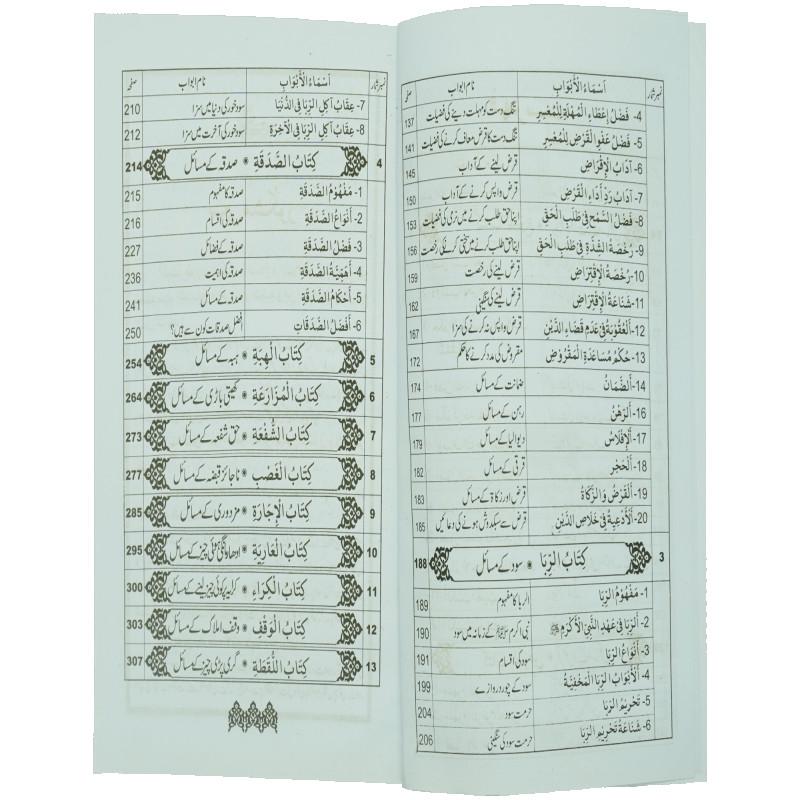 نمبر شمار اَسْمَاءُ الْأَبْوَابِ نام ابواب صفحہ
4- فَضْلُ إِعْطَاءِ الْمُهْلَةِ لِلْمُعْسِرِ تنگ دست کو مہلت دینے کی فضیلت 137
5- فَضْلُ عَفْوِ الْقَرْضِ لِلْمُعْسِرِ تنگ دست کا قرض معاف کرنے کی فضیلت 141
6- آدَابُ الْإِقْرَاضِ قرض لینے کے آداب 145
7- آدَابُ رَدِّ أَدَاءِ الْقَرْضِ قرض واپس کرنے کے آداب 150
8- فَضْلُ السَّمْحِ فِي طَلَبِ الْحَقِّ اپنا حق طلب کرنے میں نرمی کی فضیلت 153
9- رُخْصَةُ الشِّدَّةِ فِي طَلَبِ الْحَقِّ اپنا حق طلب کرنے میں سختی کرنے کی رخصت 156
10- رُخْصَةُ الْإِقْتِرَاضِ قرض لینے کی رخصت 159
11- شَنَاعَةُ الْإِقْتِرَاضِ قرض لینے کی سنگینی 162
12- اَلْعُقُوبَةُ فِي عَدَمِ قَضَاءِ الدَّيْنِ قرض واپس نہ کرنے کی سزا 167
13- حُكْمُ مُسَاعَدَةِ الْمَقْرُوضِ مقروض کی مدد کرنے کا حکم 172
14- اَلضَّمَانُ ضمانت کے مسائل 174
16- اَلرَّهْنُ رہن کے مسائل 177
17- اَلْإِفْلَاسُ دیوالیا کے مسائل 179
18- اَلْحَجْرُ قرقی کے مسائل 182
19- اَلْقَرْضُ وَ الزَّكَاةُ قرض اور زکاۃ کے مسائل 183
20- اَلْأَدْعِيَةُ فِي خَلَاصِ الدَّيْنِ قرض سے سبکدوش ہونے کی دعائیں 185
3 كِتَابُ الرِّبَا سود کے مسائل 188
1- مَفْهُومُ الرِّبَا الربا کا مفہوم 189
2- اَلرِّبَا فِي عَهْدِ النَّبِيِّ الْأَكْرَمِ ﷺ نبی اکرم ﷺ کے زمانہ میں سود 190
3- أَنْوَاعُ الرِّبَا سود کی اقسام 191
4- اَلْأَبْوَابُ الرِّبَا الْمَخْفِيَّةُ سود کے چور دروازے 199
5- تَحْرِيمُ الرِّبَا حرمت سود 204
6- شَنَاعَةُ تَحْرِيمِ الرِّبَا حرمت سود کی سنگینی 206
نمبر شمار اَسْمَاءُ الْأَبْوَابِ نام ابواب صفحہ
7- عِقَابُ آكِلِ الرِّبَا فِي الدُّنْيَا سود خور کی دنیا میں سزا 210
8- عِقَابُ آكِلِ الرِّبَا فِي الْآخِرَةِ سود خور کی آخرت میں سزا 212
4 كِتَابُ الصَّدَقَةِ صدقہ کے مسائل 214
1- مَفْهُومُ الصَّدَقَةِ صدقہ کا مفہوم 215
2- أَنْوَاعُ الصَّدَقَةِ صدقہ کی اقسام 216
3- فَضْلُ الصَّدَقَةِ صدقہ کے فضائل 227
4- أَهَمِّيَّةُ الصَّدَقَةِ صدقہ کی اہمیت 236
5- أَحْكَامُ الصَّدَقَةِ صدقہ کے مسائل 241
6- أَفْضَلُ الصَّدَقَاتِ افضل صدقات کون سے ہیں؟ 250
5 كِتَابُ الْهِبَةِ ہبہ کے مسائل 254
6 كِتَابُ الْمُزَارَعَةِ کھیتی باڑی کے مسائل 264
7 كِتَابُ الشُّفْعَةِ حق شفعہ کے مسائل 273
8 كِتَابُ الْغَصْبِ ناجائز قبضہ کے مسائل 277
9 كِتَابُ الْإِجَارَةِ مزدوری کے مسائل 285
10 كِتَابُ الْعَارِيَةِ ادھار مانگی ہوئی چیز کے مسائل 295
11 كِتَابُ الْكِرَاءِ کرایہ پر کوئی چیز لینے کے مسائل 300
12 كِتَابُ الْوَقْفِ وقف املاک کے مسائل 303
13 كِتَابُ اللُّقَطَةِ گری پڑی چیز کے مسائل 307